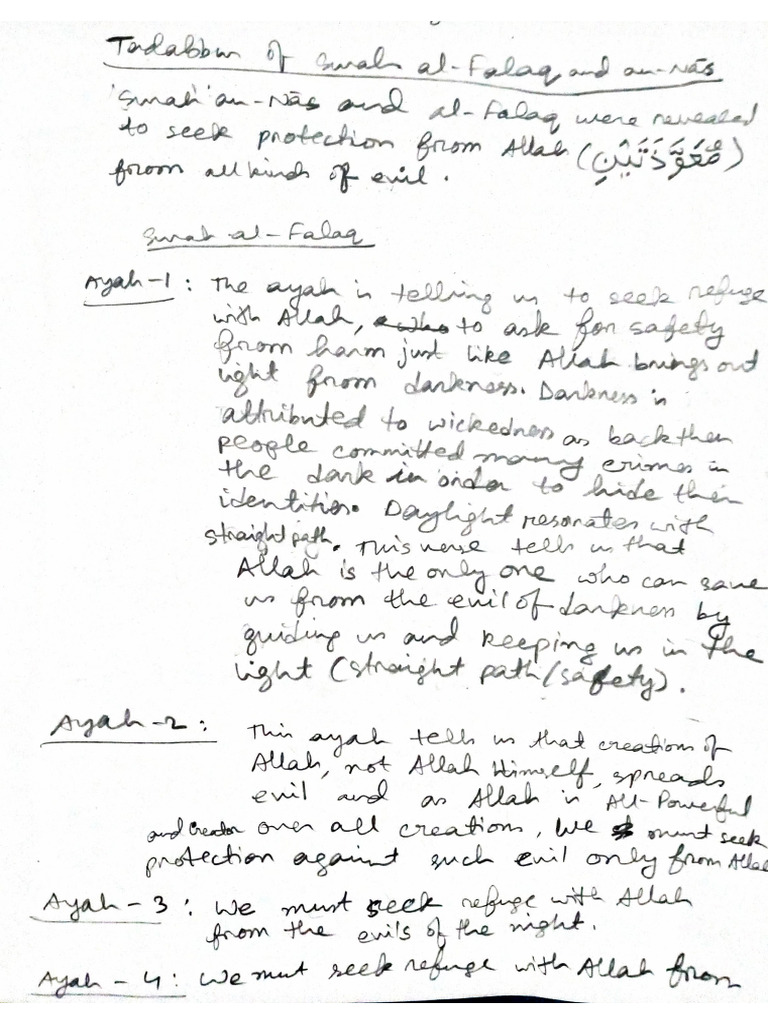 Tadabbur of Surah al-Falaq and an-Nās
Surah an-Nās and al-Falaq were revealed
to seek protection from Allah (مُعَوَّذَتَيْنِ)
from all kinds of evil.
Surah al-Falaq
Ayah-1: The ayah is telling us to seek refuge
with Allah, to ask for safety
from harm just like Allah brings out
light from darkness. Darkness is
attributed to wickedness as back then
people committed many crimes in
the dark in order to hide their
identities. Daylight resonates with
straight path. This verse tells us that
Allah is the only one who can save
us from the evil of darkness by
guiding us and keeping us in the
light (straight path/safety).
Ayah-2: This ayah tells us that creations of
Allah, not Allah Himself, spreads
evil and as Allah is All-Powerful
and Creator over all creations, we must seek
protection against such evil only from Allah
Ayah-3: We must seek refuge with Allah
from the evils of the night.
Ayah-4: We must seek refuge with Allah from